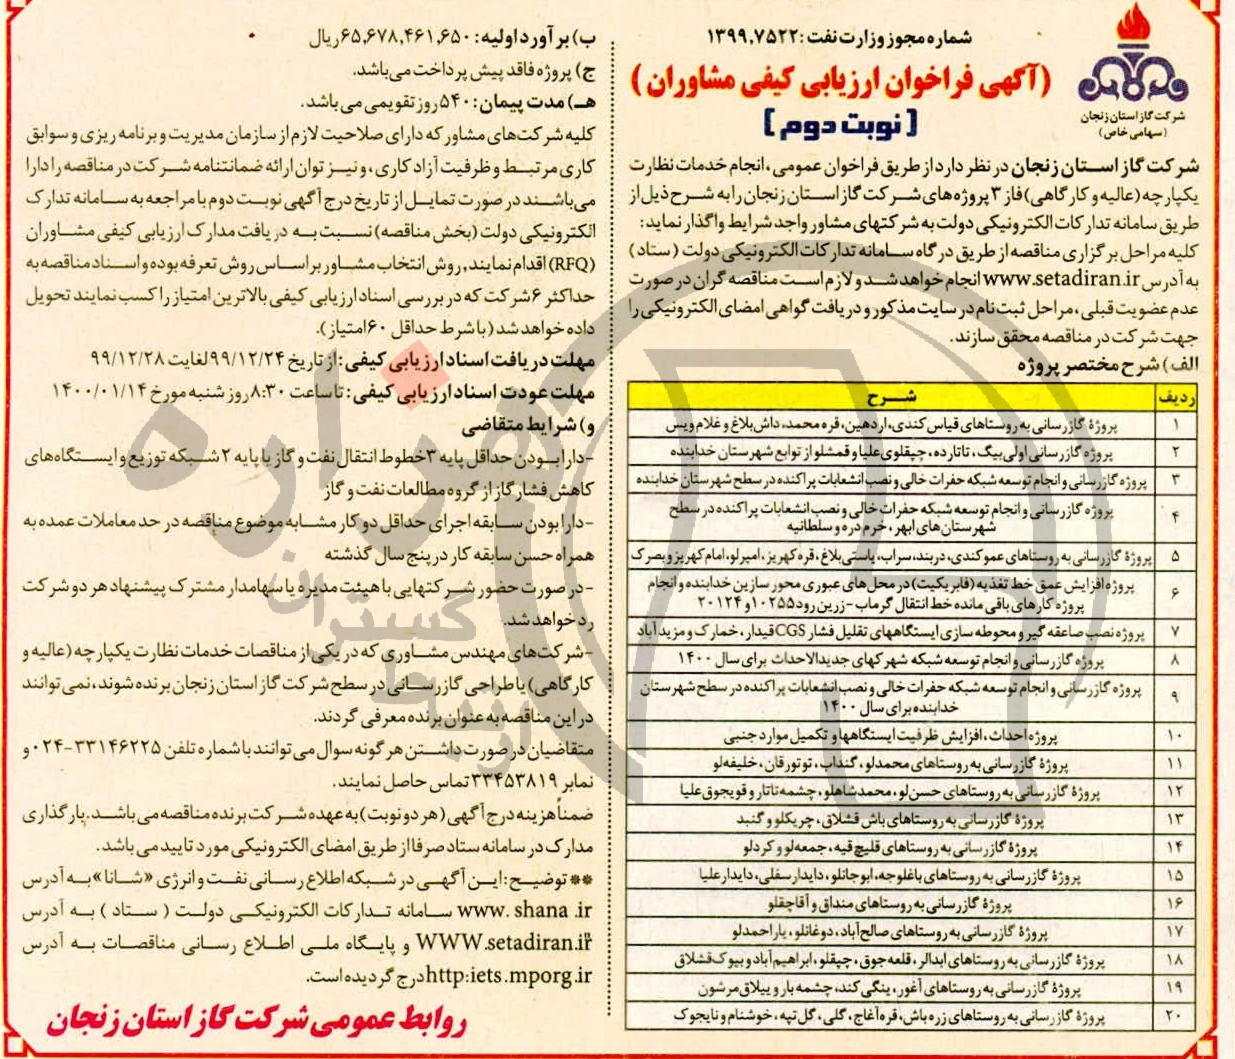 شماره مجوز وزارت نفت: ۱۳۹۹,۷۵۲۲
(آگهی فراخوان ارزیابی کیفی مشاوران)
[نوبت دوم]
شرکت گاز استان زنجان
(سهامی خاص)
شرکت گاز استان زنجان در نظر دارد از طریق فراخوان عمومی، انجام خدمات نظارت
یکپارچه (عالیه و کارگاهی) فاز ۳ پروژه‌های شرکت گاز استان زنجان را به شرح ذیل از
طریق سامانه تدارکات الکترونیکی دولت به شرکتهای مشاور واجد شرایط واگذار نماید:
کلیه مراحل برگزاری مناقصه از طریق درگاه سامانه تدارکات الکترونیکی دولت (ستاد)
به آدرس www.setadiran.ir انجام خواهد شد و لازم است مناقصه گران در صورت
عدم عضویت قبلی، مراحل ثبت نام در سایت مذکور و دریافت گواهی امضای الکترونیکی را
جهت شرکت در مناقصه محقق سازند.
الف) شرح مختصر پروژه
ردیف شـــرح
۱ پروژهٔ گازرسانی به روستاهای قیاس کندی، اردهین، قره محمد، داش بلاغ و غلام ویس
۲ پروژهٔ گازرسانی اولی بیگ، تاتارده، چپقلوی علیا و قمشلو از توابع شهرستان خدابنده
۳ پروژه گازرسانی و انجام توسعه شبکه حفرات خالی و نصب انشعابات پراکنده در سطح شهرستان خدابنده
۴ پروژهٔ گازرسانی و انجام توسعه شبکه حفرات خالی و نصب انشعابات پراکنده در سطح
شهرستان‌های ابهر، خرم دره و سلطانیه
۵ پروژهٔ گازرسانی به روستاهای عموکندی، دربند، سراب، یاستی بلاغ، قره کهریز، امیرلو، امام کهریز و بصرک
۶ پروژه افزایش عمق خط تغذیه (فابریکیت) در محل‌های عبوری محور سازین خدابنده و انجام
پروژه کارهای باقی مانده خط انتقال گرماب - زرین رود ۱۰۲۵۵ و ۲۰۱۲۴
۷ پروژه نصب صاعقه گیر و محوطه سازی ایستگاههای تقلیل فشار CGS قیدار، خمارک و مزیدآباد
۸ پروژه گازرسانی و انجام توسعه شبکه شهرکهای جدیدالاحداث برای سال ۱۴۰۰
۹ پروژه گازرسانی و انجام توسعه شبکه حفرات خالی و نصب انشعابات پراکنده در سطح شهرستان
خدابنده برای سال ۱۴۰۰
۱۰ پروژه احداث، افزایش ظرفیت ایستگاهها و تکمیل موارد جنبی
۱۱ پروژهٔ گازرسانی به روستاهای محمدلو، گنداب، توتورقان، خلیفه‌لو
۱۲ پروژهٔ گازرسانی به روستاهای حسن لو، محمدشاهلو، چشمه تاتار و قویجوق علیا
۱۳ پروژهٔ گازرسانی به روستاهای باش قشلاق، چریکلو و گنبد
۱۴ پروژهٔ گازرسانی به روستاهای قلیچ قیه، جمعه‌لو و کردلو
۱۵ پروژهٔ گازرسانی به روستاهای باغلوجه، ابوجانلو، دایدار سفلی، دایدار علیا
۱۶ پروژهٔ گازرسانی به روستاهای منداق و آقاچقلو
۱۷ پروژهٔ گازرسانی به روستاهای صالح آباد، دوغانلو، یاراحمدلو
۱۸ پروژهٔ گازرسانی به روستاهای ابدالر، قلعه جوق، چپقلو، ابراهیم آباد و بیوک قشلاق
۱۹ پروژهٔ گازرسانی به روستاهای آغور، ینگی کند، چشمه بار و ییلاق مرشون
۲۰ پروژهٔ گازرسانی به روستاهای زره باش، قره آغاج، گلی، گل تپه، خوشنام و نایجوک
ب) برآورد اولیه: ۶۵,۶۷۸,۴۶۱,۶۵۰ ریال
ج) پروژه فاقد پیش پرداخت می‌باشد.
هـ) مدت پیمان: ۵۴۰ روز تقویمی می باشد.
کلیه شرکت‌های مشاور که دارای صلاحیت لازم از سازمان مدیریت و برنامه ریزی و سوابق
کاری مرتبط و ظرفیت آزاد کاری، و نیز توان ارائه ضمانتنامه شرکت در مناقصه را دارا
می‌باشند در صورت تمایل از تاریخ درج آگهی نوبت دوم با مراجعه به سامانه تدارک
الکترونیکی دولت (بخش مناقصه) نسبت به دریافت مدارک ارزیابی کیفی مشاوران
(RFQ) اقدام نمایند, روش انتخاب مشاور بر اساس روش تعرفه بوده و اسناد مناقصه به
حداکثر ۶ شرکت که در بررسی اسناد ارزیابی کیفی بالاترین امتیاز را کسب نمایند تحویل
داده خواهد شد (با شرط حداقل ۶۰ امتیاز).
مهلت دریافت اسناد ارزیابی کیفی: از تاریخ ۹۹/۱۲/۲۴ لغایت ۹۹/۱۲/۲۸
مهلت عودت اسناد ارزیابی کیفی: تا ساعت ۸:۳۰ روز شنبه مورخ ۱۴۰۰/۰۱/۱۴
و) شرایط متقاضی
-دارا بودن حداقل پایه ۳ خطوط انتقال نفت و گاز یا پایه ۲ شبکه توزیع و ایستگاه‌های
کاهش فشار گاز از گروه مطالعات نفت و گاز
-دارا بودن سابقه اجرای حداقل دو کار مشابه موضوع مناقصه در حد معاملات عمده به
همراه حسن سابقه کار در پنج سال گذشته
-در صورت حضور شرکتهایی با هیئت مدیره یا سهامدار مشترک پیشنهاد هر دو شرکت
رد خواهد شد.
-شرکت‌های مهندس مشاوری که در یکی از مناقصات خدمات نظارت یکپارچه (عالیه و
کارگاهی) یا طراحی گازرسانی در سطح شرکت گاز استان زنجان برنده شوند، نمی توانند
در این مناقصه به عنوان برنده معرفی گردند.
متقاضیان در صورت داشتن هر گونه سوال می توانند با شماره تلفن ۳۳۱۴۶۲۲۵-۰۲۴ و
نمابر ۳۳۴۵۳۸۱۹ تماس حاصل نمایند.
ضمناً هزینه درج آگهی (هر دو نوبت) به عهده شرکت برنده مناقصه می باشد. بارگذاری
مدارک در سامانه ستاد صرفا از طریق امضای الکترونیکی مورد تایید می باشد.
** توضیح: این آگهی در شبکه اطلاع رسانی نفت و انرژی «شانا» به آدرس
www. shana .ir سامانه تدارکات الکترونیکی دولت (ستاد) به آدرس
WWW.setadiran.ir و پایگاه ملی اطلاع رسانی مناقصات به آدرس
http:iets.mporg.ir درج گردیده است.
روابط عمومی شرکت گاز استان زنجان